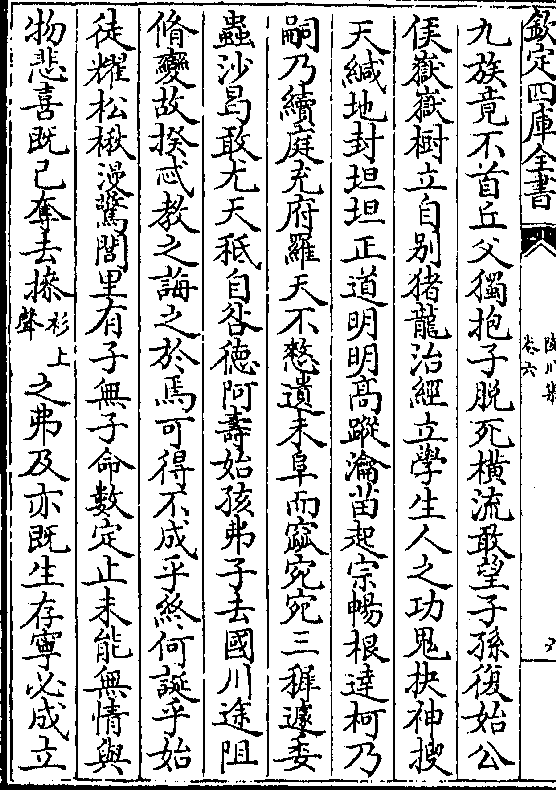 欽定四庫全書
陵川集
卷六
九族竟不首丘父獨抱子脱死橫流敢望子孫復始公
侯嶽嶽樹立自别猪龍治經立學生人之功鬼抉神搜
天緘地封坦坦正道明明髙蹤瀹苗起宗暢根達柯乃
嗣乃續庭充府羅天不憗遺未阜而窳宛宛三穉遽委
蟲沙曷敢尤天秪自咎徳阿壽始孩弗子去國川途阻
脩變故揆忒教之誨之於焉可得不成乎終何誕乎始
徒耀松楸漫驚閭里有子無子命數定止未能無情與
物悲喜既已奪去摻衫上聲之弗及亦既生存寧必成立